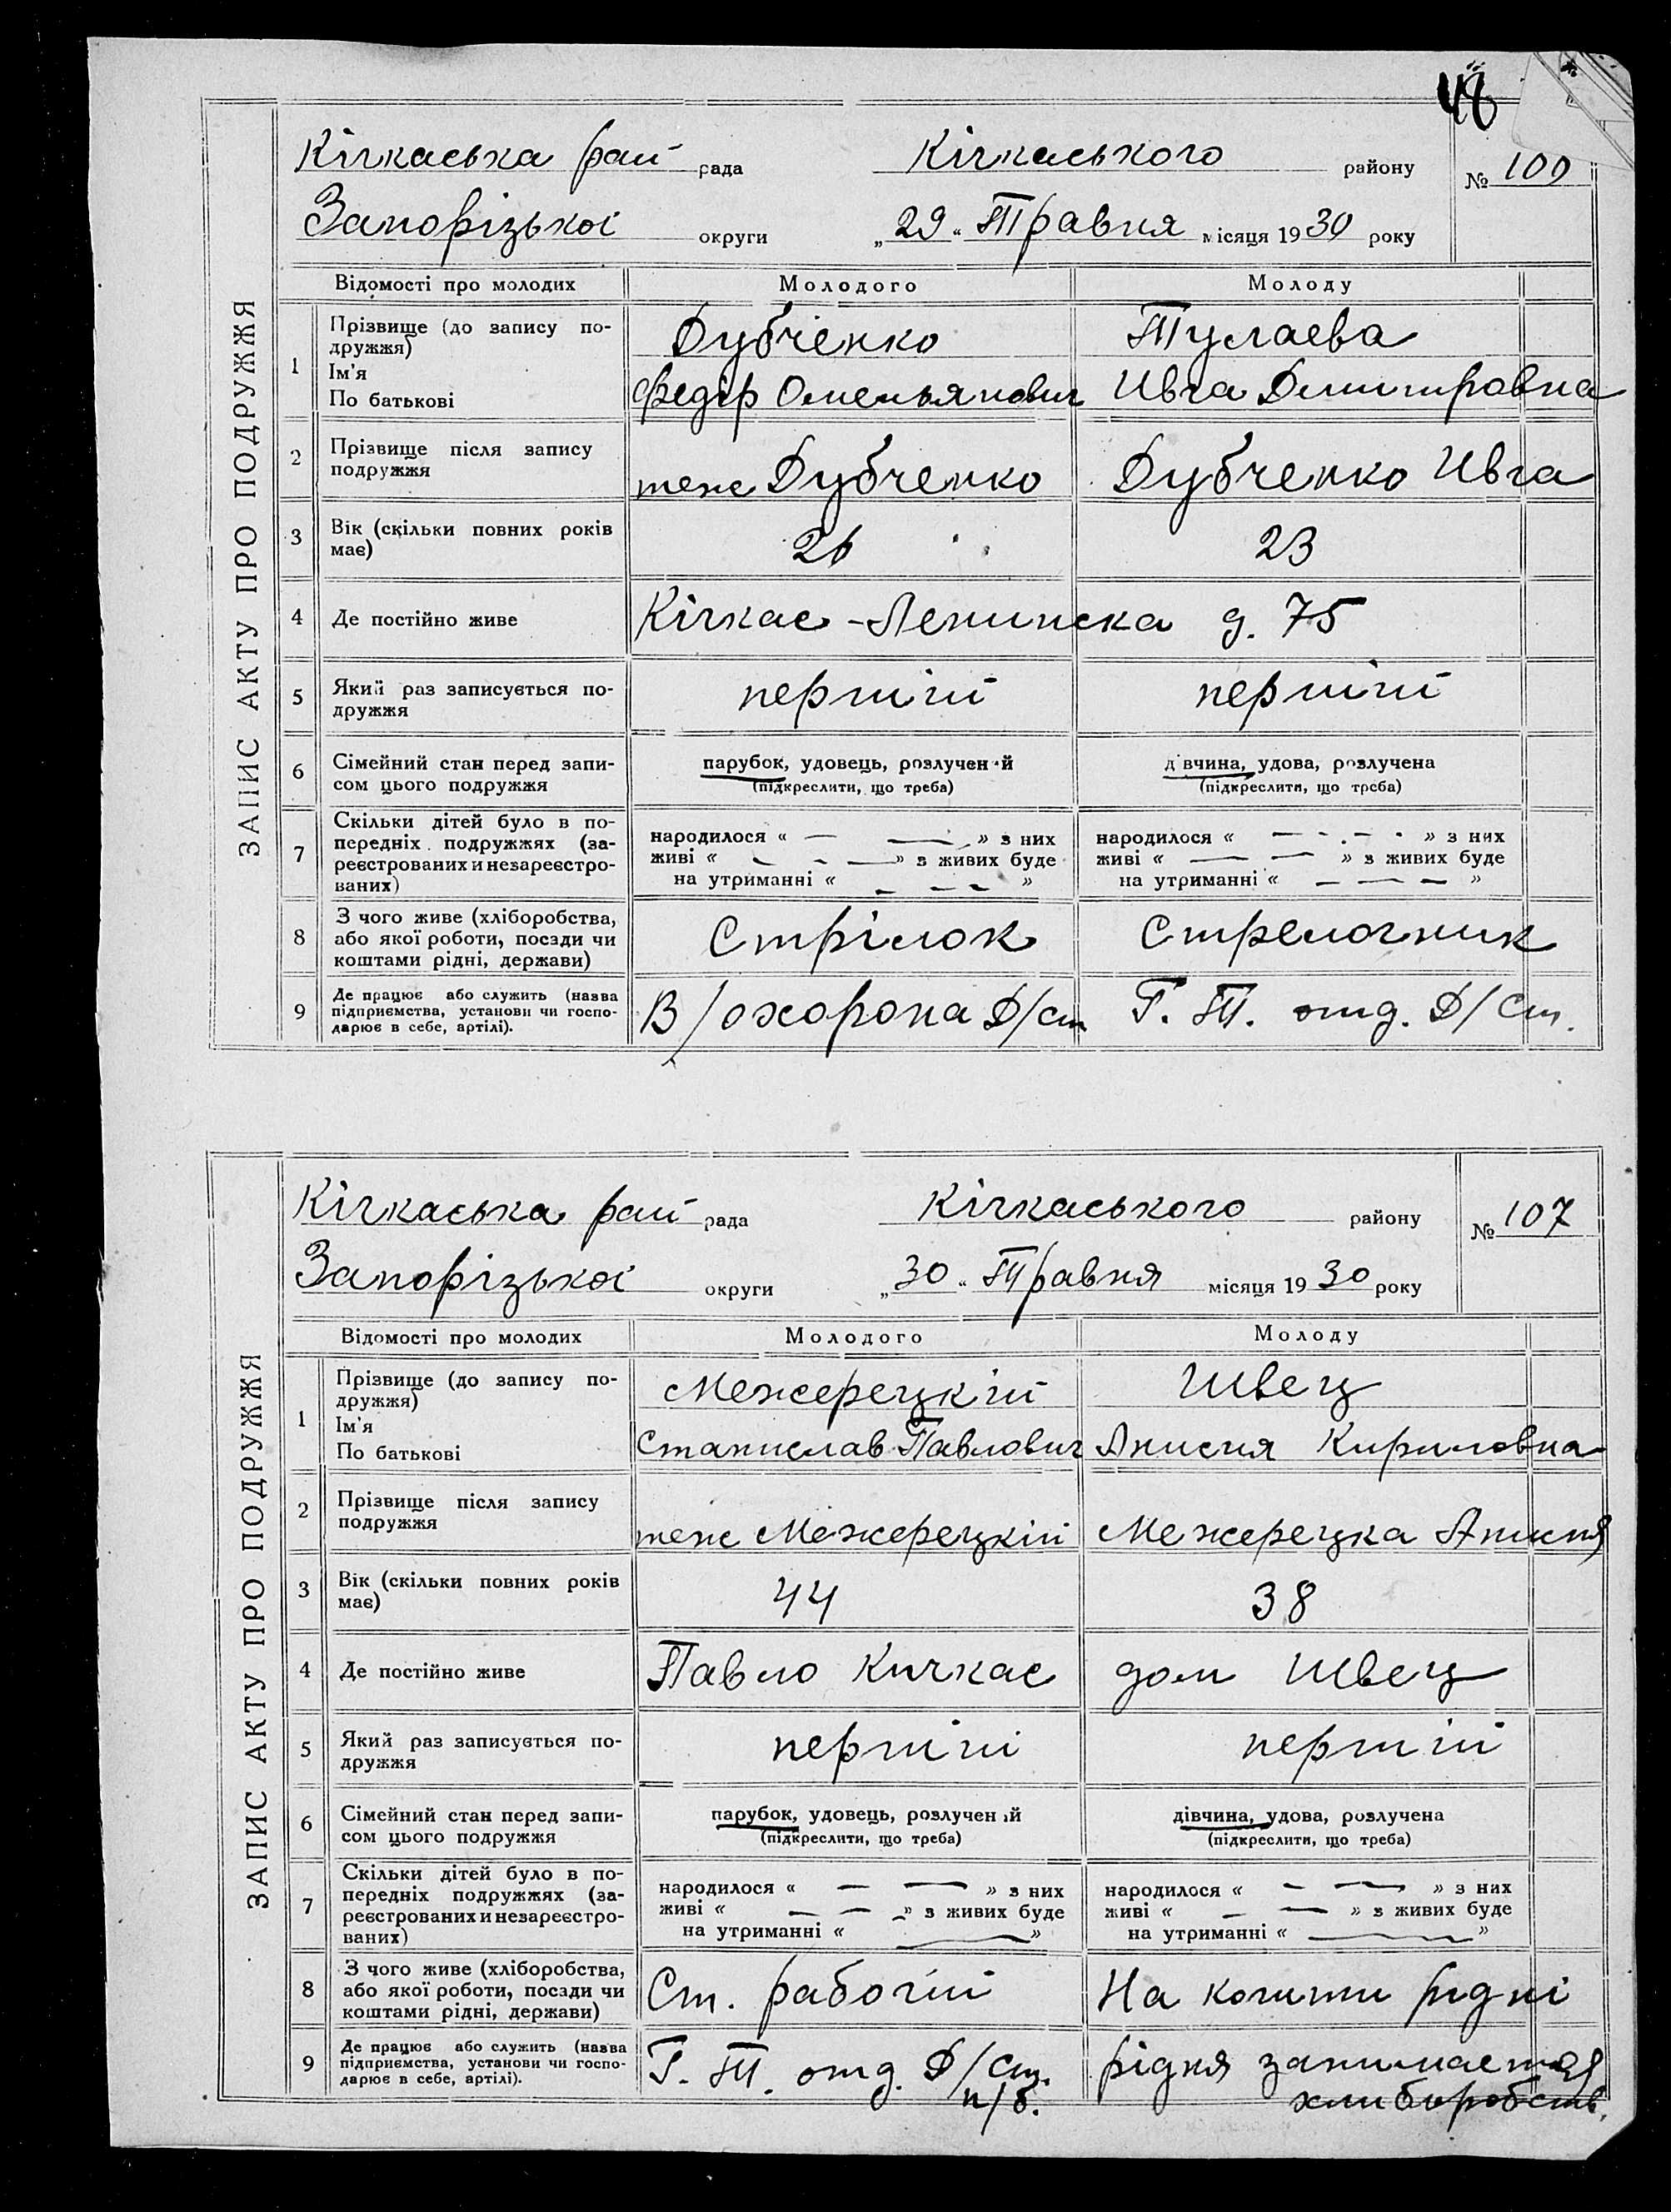 48
ЗАПИС АКТУ ПРО ПОДРУЖЖЯ
Кічкаська рай рада Кічкаського району № 109
Запорізької округи „29“ Травня місяця 1930 року
Відомості про молодих Молодого Молоду
1 Прізвище (до запису по-
дружжя) Дубченко Тулаева
Ім'я
По батькові Федір Омельянович Ивга Дмитровна
2 Прізвище після запису
подружжя теж Дубченко Дубченко Ивга
3 Вік (скільки повних років
має) 26 23
4 Де постійно живе Кічкас - Ленинска д. 75
5 Який раз записується по-
дружжя перший перший
6 Сімейний стан перед запи-
сом цього подружжя
парубок, удовець, розлучений дівчина, удова, розлучена
(підкреслити, що треба) (підкреслити, що треба)
7 Скільки дітей було в по-
передніх подружжях (за-
реєстрованих и незареєстро-
ваних)
народилося « — — » з них народилося « — - . - » з них
живі « — - — » з живих буде живі « — — » з живих буде
на утриманні « — — — » на утриманні « — — — »
8 З чого живе (хліборобства,
або якої роботи, посади чи
коштами рідні, держави) Стрілок Стрелочник
9 Де працює або служить (назва
підприємства, установи чи госпо-
дарює в себе, артілі). В/охорона Д/ст Г. Т. отд. Д/Ст.
ЗАПИС АКТУ ПРО ПОДРУЖЖЯ
Кічкаська рай рада Кічкаського району № 107
Запорізької округи „30“ Травня місяця 1930 року
Відомості про молодих Молодого Молоду
1 Прізвище (до запису по-
дружжя) Межерецкій Швец
Ім'я
По батькові Станислав Павлович Анисия Кириловна
2 Прізвище після запису
подружжя теж Межерецкій Межерецка Анисия
3 Вік (скільки повних років
має) 44 38
4 Де постійно живе Павло Кичкас дом Швец
5 Який раз записується по-
дружжя перший перший
6 Сімейний стан перед запи-
сом цього подружжя
парубок, удовець, розлучений дівчина, удова, розлучена
(підкреслити, що треба) (підкреслити, що треба)
7 Скільки дітей було в по-
передніх подружжях (за-
реєстрованих и незареєстро-
ваних)
народилося « — — » з них народилося « — — » з них
живі « — — » з живих буде живі « — — » з живих буде
на утриманні « — » на утриманні « — »
8 З чого живе (хліборобства,
або якої роботи, посади чи
коштами рідні, держави) Ст. рабочій На кошти рідні
9 Де працює або служить (назва
підприємства, установи чи госпо-
дарює в себе, артілі). Г. Т. отд. Д/Ст. рідня занимается
п/б. хлиборобств.